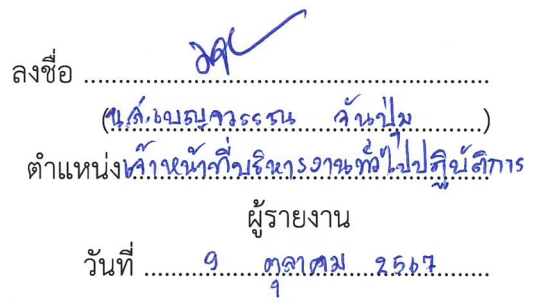 ลงชื่อ ........................................................
(น.ส.เบญจวรรณ จันปุ่ม)
ตำแหน่งเจ้าหน้าที่บริหารงานทั่วไปปฏิบัติการ
ผู้รายงาน
วันที่ ..... 9 ..... ตุลาคม ..... 2567 .....